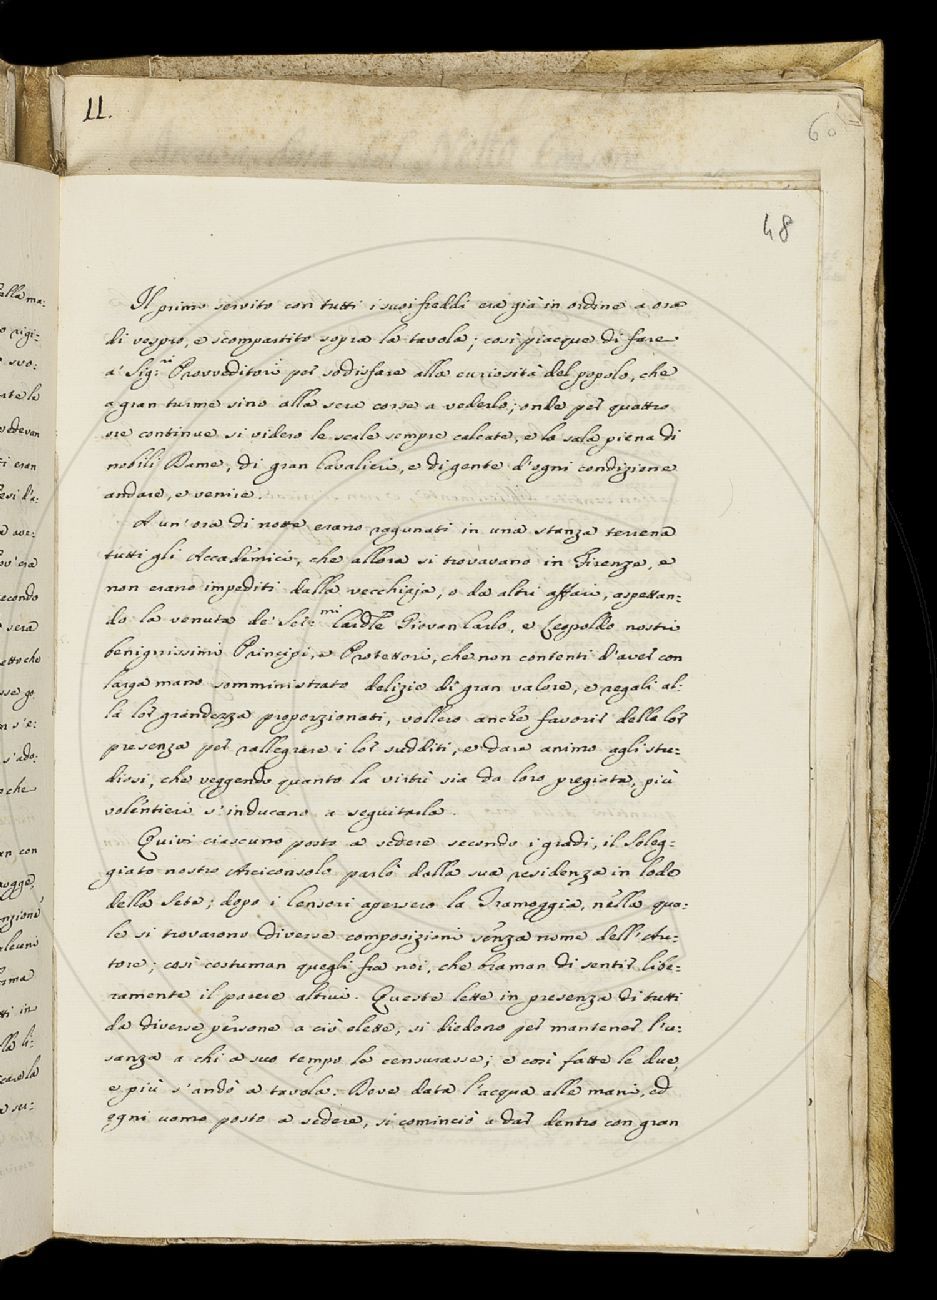 11.
60
48
Il primo servito con tutti i suoi freddi era già in ordine a ora
di vespro, e scompartito sopra la tavola; così piacque di fare
a' Sig:ri Provveditori per sodisfare alla curiosità del popolo, che
a gran turme sino alla sera corse a vederlo; onde per quattro
ore continue si videro le scale sempre calcate, e la sala piena di
nobili Dame, di gran Cavalieri, e di gente d'ogni condizione
andare, e venire.
A un'ora di notte erano ragunati in una stanza terrena
tutti gli Accademici, che allora si trovavano in Firenze, e
non erano impediti dalla vecchiaja, o da altri affari, aspettan:
do la venuta de' Ser:mi Card:li Giovan Carlo, e Leopoldo nostri
benignissimi Principi, e Protettori, che non contenti d'aver con
larga mano somministrato delizie di gran valore, e regali al:
la lor grandezza proporzionati, vollero anche favorir della lor
presenza per rallegrare i lor sudditi, e dare animo agli stu:
diosi, che veggendo quanto la virtù sia da loro pregiata, più
volentieri s'inducano a seguitarla.
Quivi ciascuno posto a sedere secondo i gradi, il Soleg:
giato nostro Arciconsolo parlò dalla sua residenza in lode
della Sete; dopo i Censori apersero la Tramoggia, nella qua:
le si trovarono diverse composizioni senza nome dell'Au:
tore; così costuman quegli fra noi, che braman di sentir libe:
ramente il parere altrui. Queste lette in presenza di tutti
da diverse persone a ciò elette, si diedono per mantener l'u:
sanza a chi a suo tempo le censurasse; e così fatte le due,
e più s'andò a tavola. Dove data l'acqua alle mani, ed
ogni uomo posto a sedere, si cominciò a dar dentro con gran